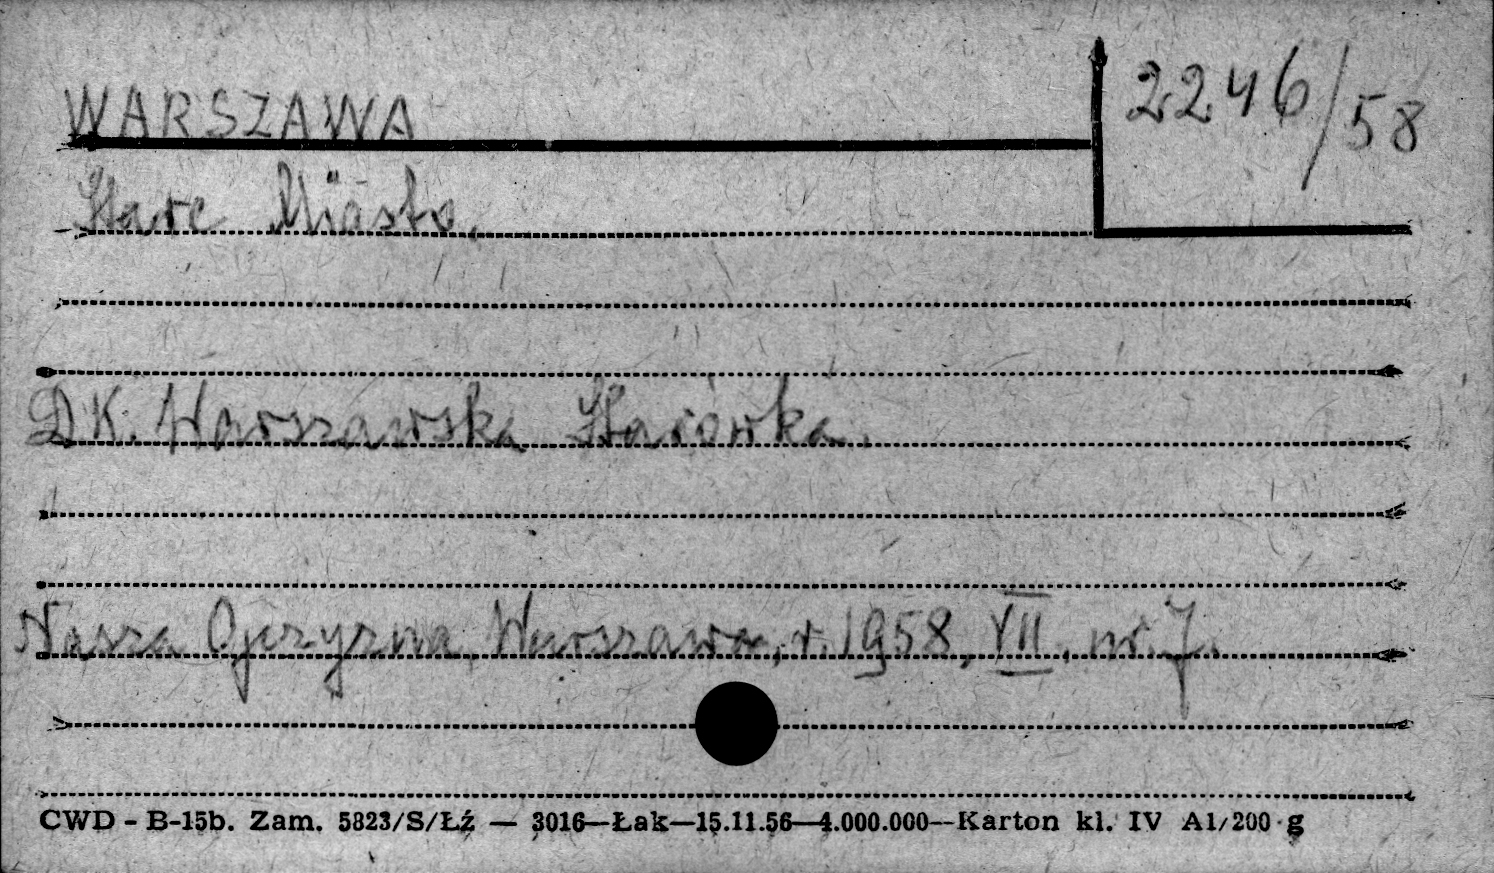 WARSZAWA
2246/58
Stare Miasto.
DK. Warszawska Starówka.
Nasza Ojczyzna, Warszawa, r. 1958, VII, nr. 7.
CWD - B-15b. Zam. 5823/S/Łź — 3016—Łak—15.11.56—4.000.000—Karton kl. IV A1/200 g